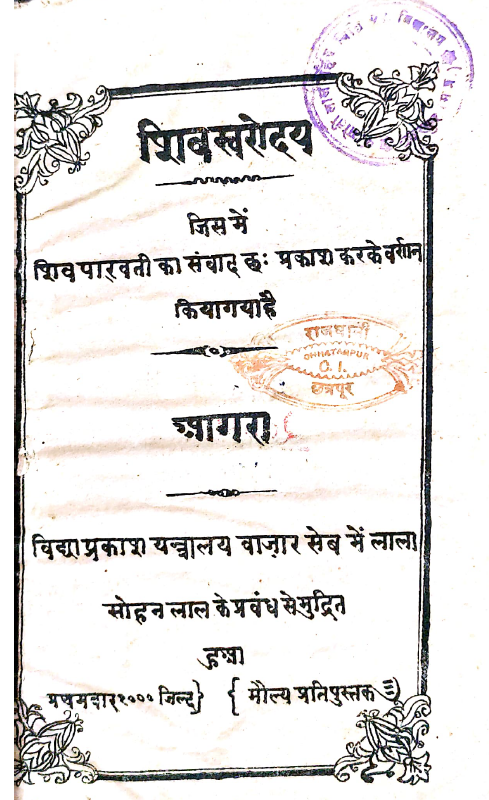 शिवस्वरोदय
जिस में
शिव पारवती का संवाद छः प्रकाश करके वर्णन
कियागयाहै
राजधानी
CHHATARPUR
C. I.
छत्रपूर
आगरा
विद्या प्रकाश यन्त्रालय बाज़ार सेब में लाला
सोहन लाल के प्रवंध से मुद्रित
हुआ
प्रथमबार १००० जिल्द} { मौल्य प्रतिपुस्तक